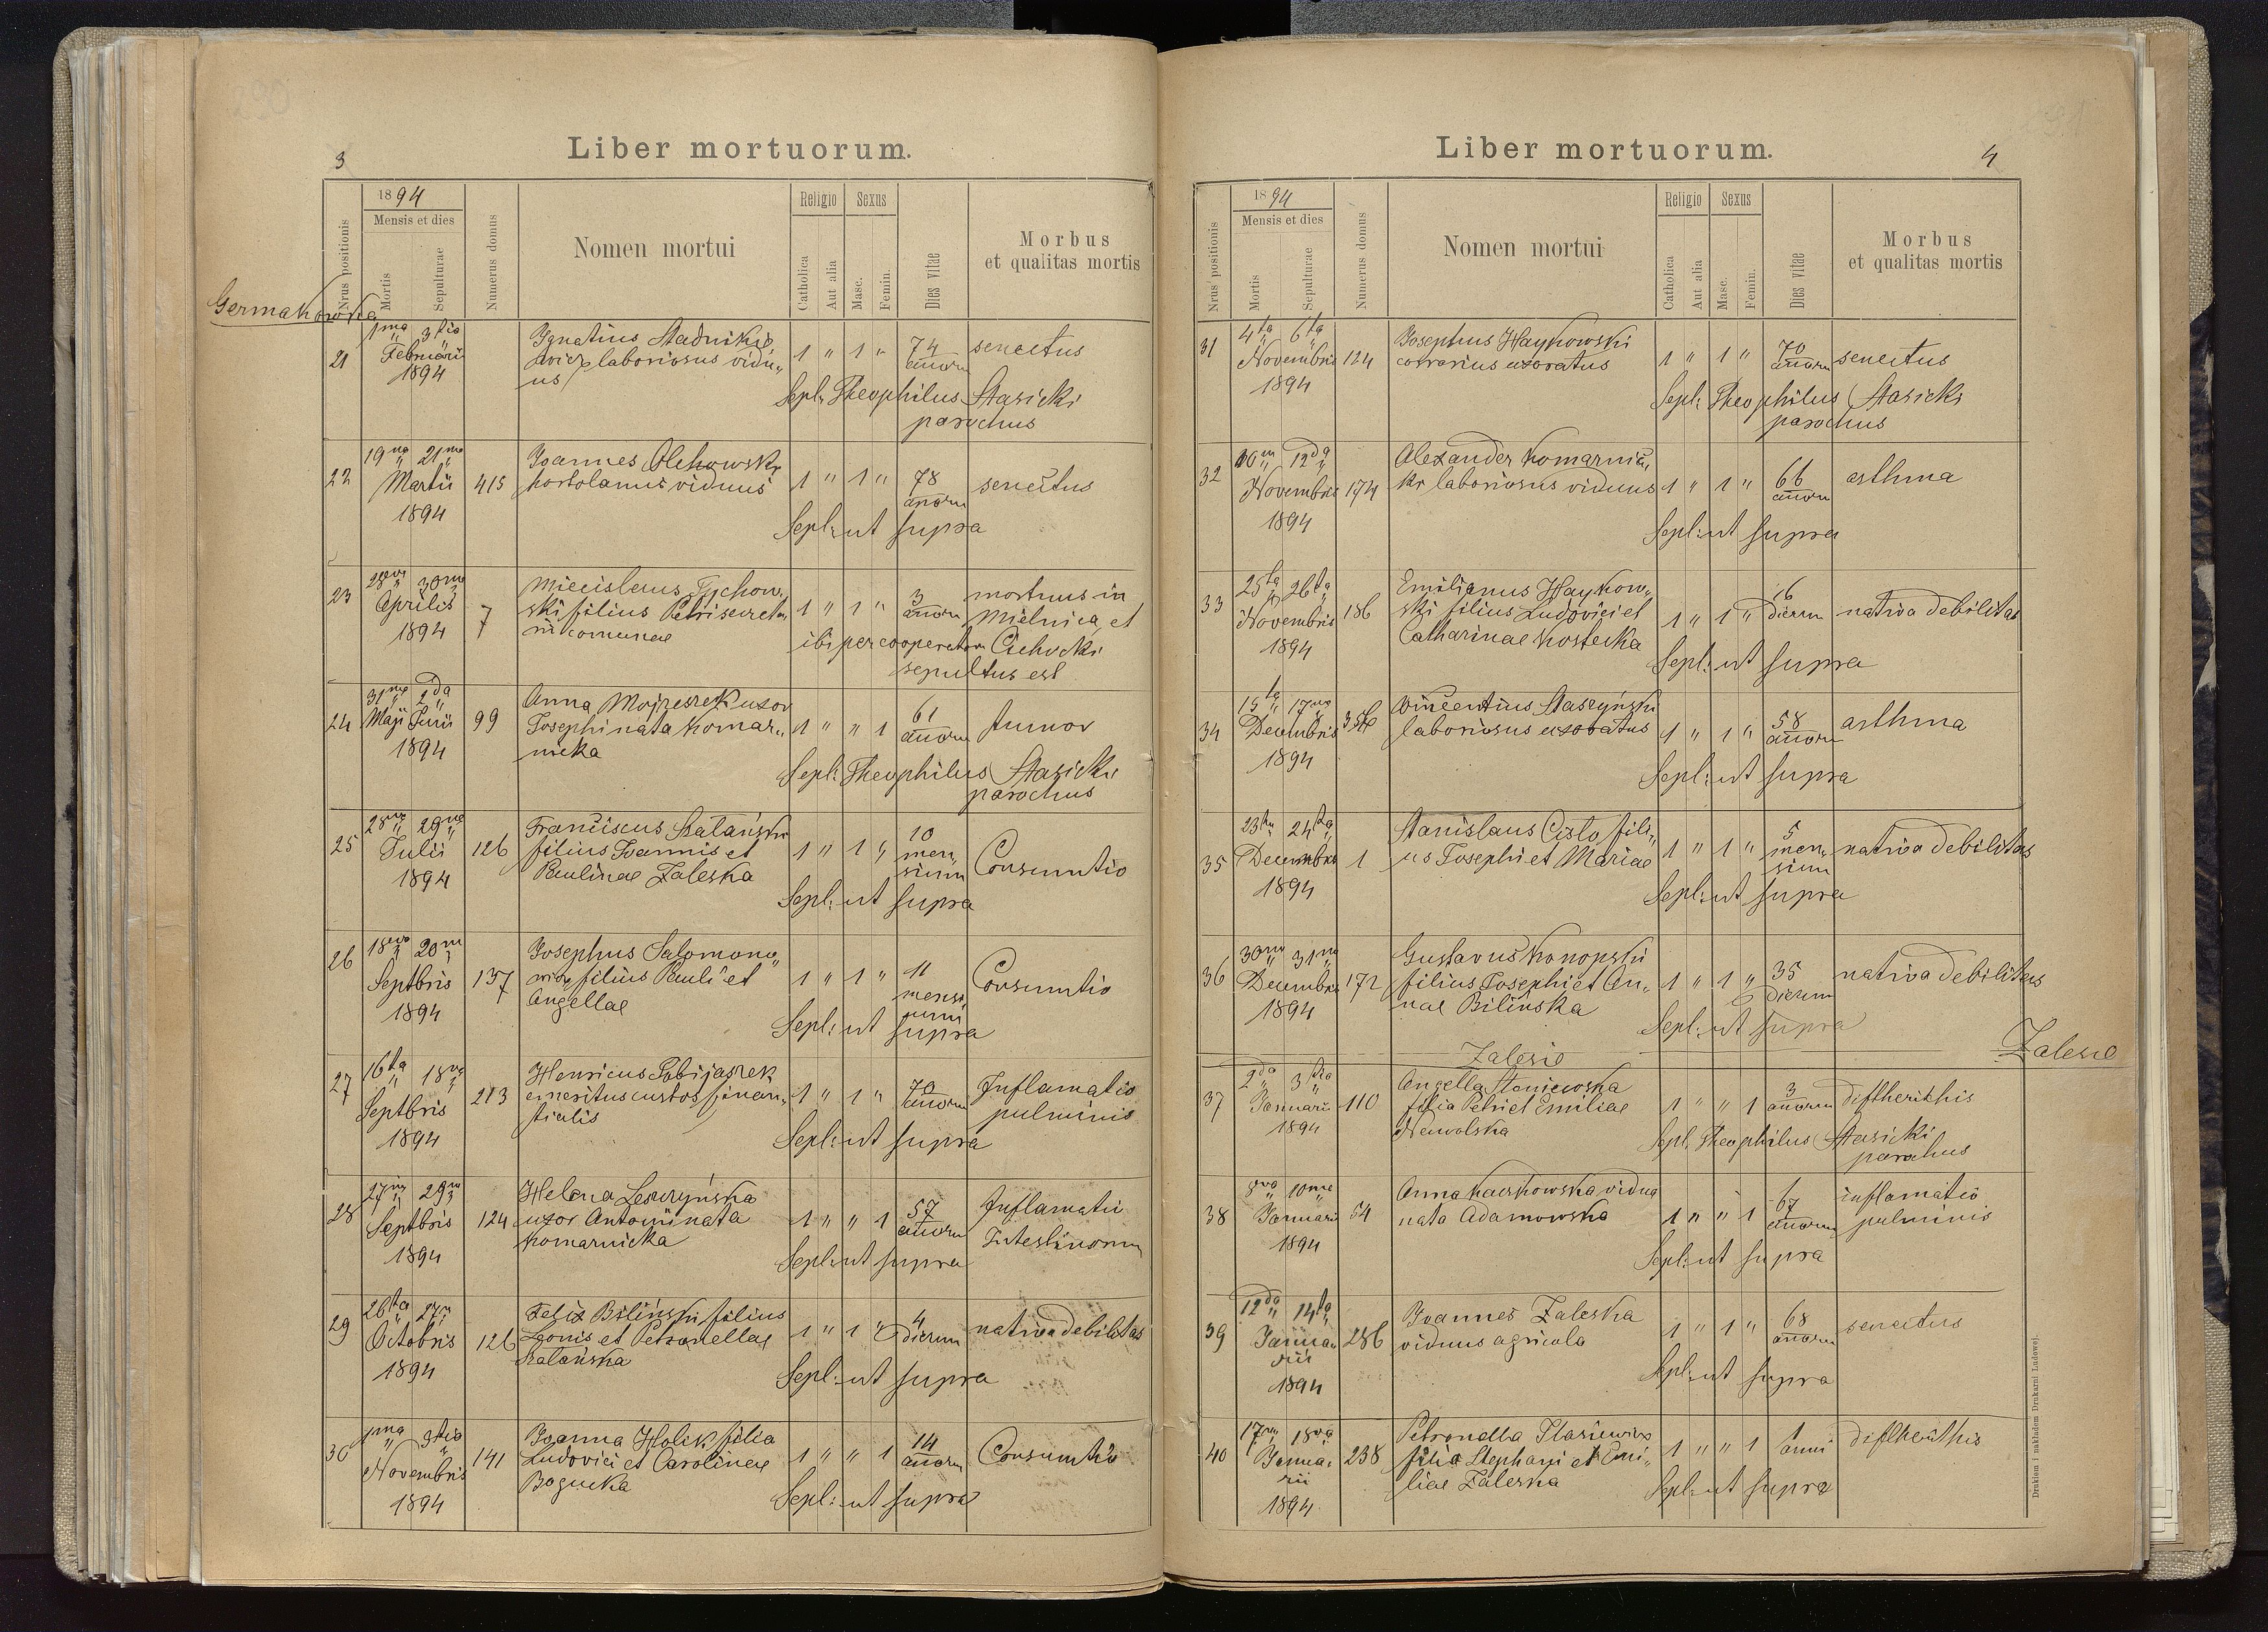 3
Liber mortuorum.
Nrus positionis
1894
Mensis et dies
Mortis
Sepulturae
Numerus domus
Nomen mortui
Religio
Catholica
Aut alia
Sexus
Masc.
Femin.
Dies vitae
Morbus
et qualitas mortis
Germakówka
21
1ma 3tia
Februarii
1894
Ignatius Stadnikie
wicz laboriosus vidu„
us
1 " 1 "
74
annorum
senectus
Sepl: Theophilus Stasicki
parochus
22
19na 21ma
Martii
1894
415
Joannes Olchowski
hortolanus viduus
1 " 1 "
78
annorum
senectus
Sepl: ut supra
23
28va 30ma
Aprilis
1894
7
Miecislaus Tychow„
ski filius Petri secreta
rii comunae
1 " 1 "
3
annorum
mortuus in
Mielnica, et
ibi per cooperatorem Cichocki
sepultus est
24
31ma 2da
Maji Junii
1894
99
Anna Mojzeszek uxor
Josephi nata Komar„
nicka
1 " " 1
61
annorum
tumor
Sepl: Theophilus Stasicki
parochus
25
28va 29na
Julii
1894
126
Franciscus Szatański
filius Joannis et
Paulinae Zaleska
1 " 1 "
10
men„
sium
Consumtio
Sepl: ut supra
26
18va 20ma
Septbris
1894
137
Josephus Salomono„
wicz filius Pauli et
Angellae
1 " 1 "
11
mensi
um
Consumtio
Sepl: ut supra
27
16ta 18va
Septbris
1894
213
Henricus Pobijaszek
emeritus custos finan„
tialis
1 " 1 "
70
annorum
Inflamatio
pulminis
Sepl: ut supra
28
27ma 29na
Septbris
1894
124
Helena Leszczyńska
uxor Antonii nata
Komarnicka
1 " " 1
57
annorum
Inflamatii
Intestinorum
Sepl: ut supra
29
26ta 27ma
Octobris
1894
126
Felix Biliński filius
Leonis et Petronellae
Szatańska
1 " 1 "
4
dierum
nativa debilitas
Sepl: ut supra
30
1ma 3tia
Novembris
1894
141
Joanna Holik filia
Ludovici et Carolinae
Bogucka
1 " " 1
14
annorum
Consumtio
Sepl: ut supra
Liber mortuorum.
4
Nrus positionis
1894
Mensis et dies
Mortis
Sepulturae
Numerus domus
Nomen mortui
Religio
Catholica
Aut alia
Sexus
Masc.
Femin.
Dies vitae
Morbus
et qualitas mortis
31
4ta 6ta
Novembris
1894
124
Josephus Haykowski
uxoratus
1 " 1 "
70
annorum
senectus
Sepl: Theophilus Stasicki
parochus
32
10ma 12da
Novembris
1894
174
Alexander Komarnic„
ki laboriosus viduus
1 " 1 "
66
annorum
asthma
Sepl: ut supra
33
25ta 26ta
Novembris
1894
186
Emilianus Haykow„
ski filius Ludovici et
Catharinae Kostecka
1 " 1 "
16
dierum
nativa debilitas
Sepl: ut supra
34
15ta 17ma
Decembris
1894
Vincentius Staszyński
laboriosus uxoratus
1 " 1 "
58
annorum
asthma
Sepl: ut supra
35
23tia 24ta
Decembris
1894
1
Stanislaus Cisło fili„
us Josephi et Mariae
1 " 1 "
5
men„
sium
nativa debilitas
Sepl: ut supra
36
30ma 31ma
Decembris
1894
172
Gustavus Konopski
filius Josephi et An„
nae Bilinska
1 " 1 "
35
dierum
nativa debilitas
Sepl: ut supra
Zalesie
Zalesie
37
2da 3tia
Januarii
1894
110
Angella Staniewska
filia Petri et Emiliae
Newolska
1 " " 1
3
annorum
diftherithis
Sepl. Theophilus Stasicki
parochus
38
8va 10ma
Januarii
1894
54
Anna Kaczkowska vidua
nata Adamowska
1 " " 1
67
annorum
inflamatio
pulminis
Sepl: ut supra
39
12da 14ta
Janua„
rii
1894
286
Joannes Zaleska
viduus agricola
1 " 1 "
68
annorum
senectus
Sepl: ut supra
40
17ma 18va
Janua„
rii
1894
238
Petronella Stasiewicz
filia Stephani et Emi„
liae Zaleska
1 " " 1
1 anni
diftherithis
Sepl: ut supra
Drukiem i nakładem Drukarni Ludowej.